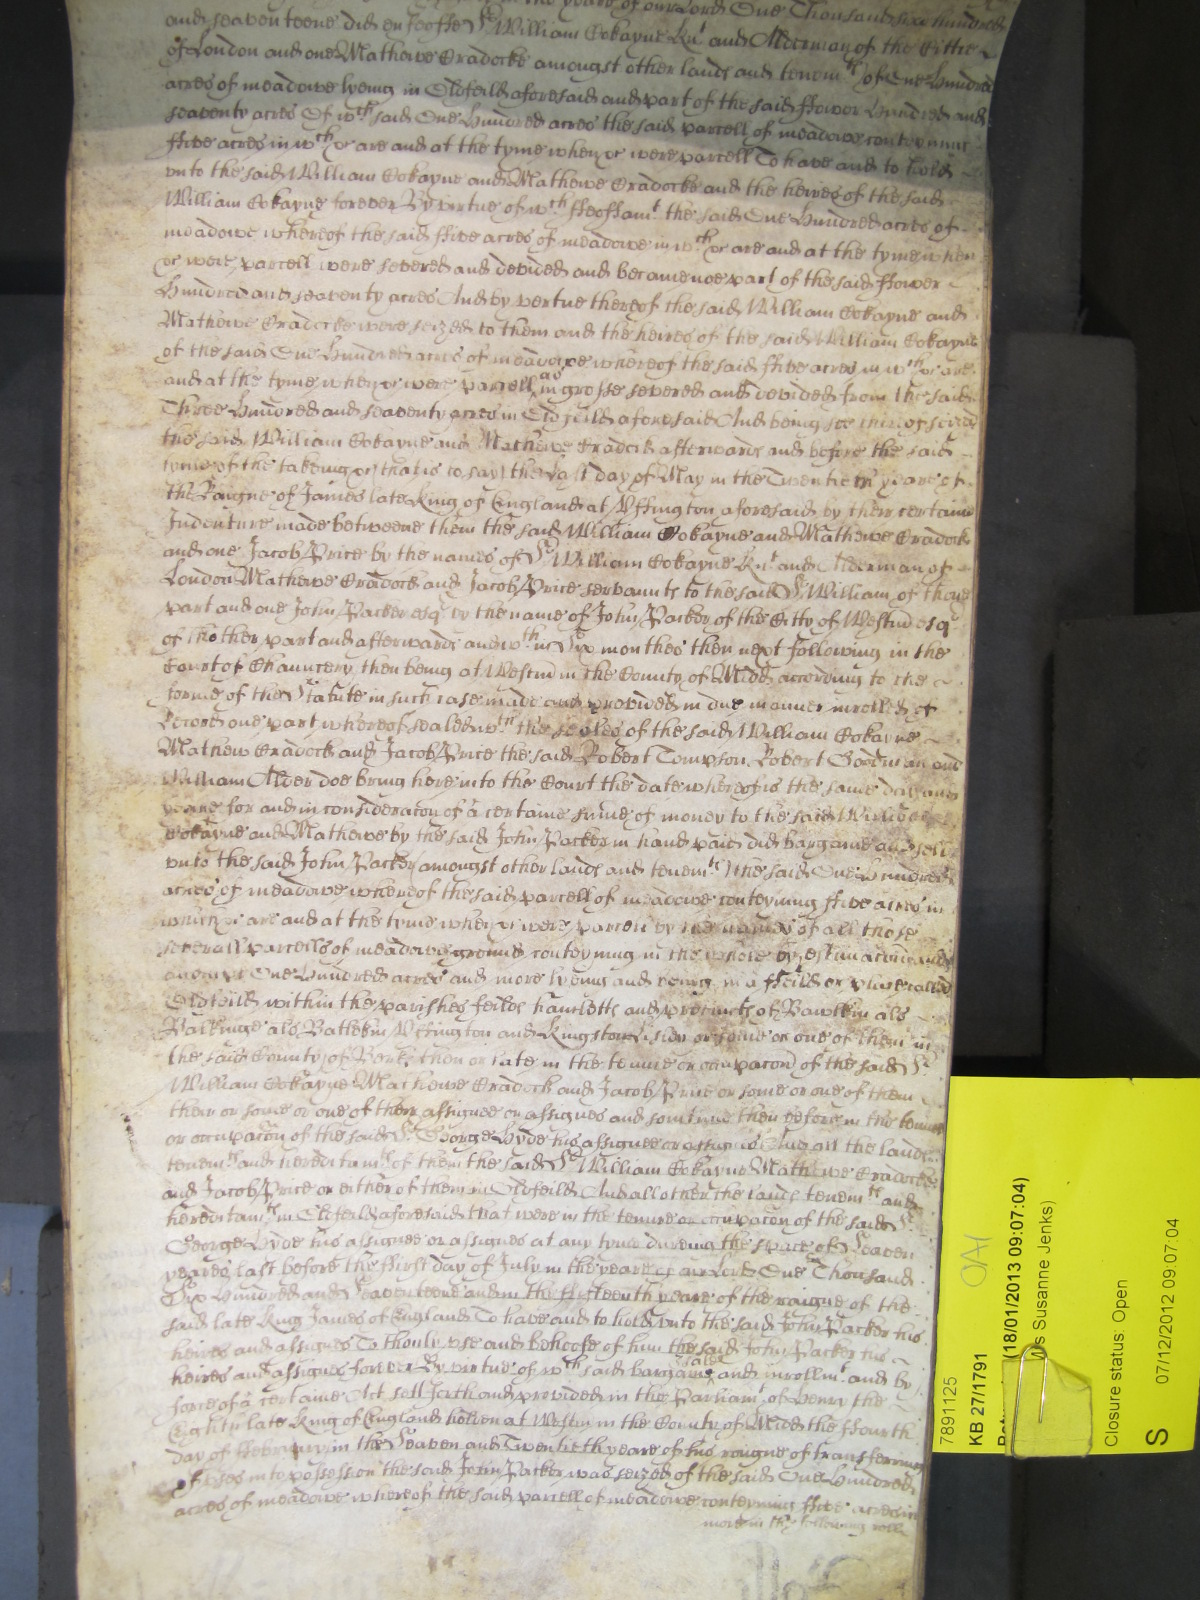 in the yeare of our Lord One Thousand six hundred
and seaven teene did enfeoffe Sr William Cokayne Knt and Alderman of the Cittie
of London and one Mathewe Cradocke amongst other lands and tenemts of One Hundred
acres of meadowe lyeing in Oldfeild aforesaid and part of the said ffower Hundred and
seaventy acres Of wch said One Hundred acres the said parcell of meadowe conteyninge
ffive acres in wch &c are and at the tyme when &c were parcell To have and to hold
vnto the said William Cokayne and Mathewe Cradocke and the heires of the said
William Cokayne forever By vertue of wch ffeoffamt the said One Hundred acres of
meadowe whereof the said ffive acres of meadowe in wch &c are and at the tyme when
&c were parcell were severed and devided and became noe part of the said ffower
Hundred and seaventy acres And by vertue thereof the said William Cokayne and
Mathewe Cradocke were seized to them and the heires of the said William Cokayne
of the said One Hundred acres of meadowe whereof the said ffive acres in wch &c are
and at the tyme when &c were parcell as in grosse severed and devided from the said
Three Hundred and seaventy acres in Oldfeild aforesaid And being soe thereof seized
the said William Cokayne and Mathewe Cradock afterwards and before the said
tyme of the takeing &c that is to say the last day of May in the Twentieth yeare of
the Raigne of James late King of England at Vffington aforesaid by their certaine
Indenture made betweene them the said William Cokayne and Mathewe Cradock
and one Jacob Price by the names of Sr William Cokayne Knt and Alderman of
London Mathewe Cradock and Jacob Price servaunts to the said Sr William of thone
part and one John Packer esq by the name of John Packer of the Citty of Westm esq
of thother part and afterwards and wthin Six monthes then next following in the
Court of Chauncery then being at Westm in the County of Midd according to the
forme of the Statute in such case made and provided in due manner inrolled of
Record one part whereof sealed wth the seales of the said William Cokayne
Mathew Cradock and Jacob Price the said Robert Tompson Robert Goodman and
William Alder doe bring here into the Court the date whereof is the same day and
yeare for and in consideracon of a certaine summe of money to the said William
Cokayne and Mathewe by the said John Packer in hand paid did bargaine and sell
vnto the said John Packer amongst other lands and tenemts the said One Hundred
acres of meadowe whereof the said parcell of meadowe conteyning ffive acres in
which &c are and at the tyme when &c were parcell by the names of all those
severall parcells of meadowe ground conteyning in the whole by estimacion
One Hundred acres and more lyeing and being in a ffeild or place called
Oldfeild within the parishes feilds hamletts and precincts of Bawlkin als
Balkinge als Batlekin Vffington and Kingston Lisle or some or one of them in
the said County of Berk then or late in the tenure or occupacon of the said Sr
William Cokayne Mathewe Cradock and Jacob Price or some or one of them
their or some or one of their assignee or assignes and sometime then before in the tenure
or occupacon of the said Sr George Hyde his assignee or assignes And all the lands
tenemts and hereditamts of them the said Sr William Cokayne Mathewe Cradocke
and Jacob Price or either of them in Oldfeild And all other the lands tenemts and
hereditamts in Oldfeild aforesaid that were in the tenure or occupacon of the said Sr
George Hyde his assignee or assignes at any tyme dureing the space of Seaven
yeares last before the ffirst day of July in the yeare of our Lord One Thousand
Six Hundred and Seaventeene and in the ffifteenth yeare of the raigne of the
said late King James of England To have and to hold vnto the said John Packer his
heires and assignes To thonly vse and behoofe of him the said John Packer his
heires and assignes forever By virtue of wch said bargaine sale and inrollmt and by
force of a certaine Act sett forth and provided in the Parliamt of Henry the
Eighth late King of England holden at Westm in the County of Midd the ffourth
day of ffebruary in the Seaven and Twentieth yeare of his raigne of transferring
of vses into possession the said John Packer was seized of the said One Hundred
acres of meadowe whereof the said parcell of meadowe conteyning ffive acres in
more in the following roll
7891125
KB 27/1791
(18/01/2013 09:07:04)
s Susanne Jenks)
Closure status: Open
S
07/12/2012 09:07:04